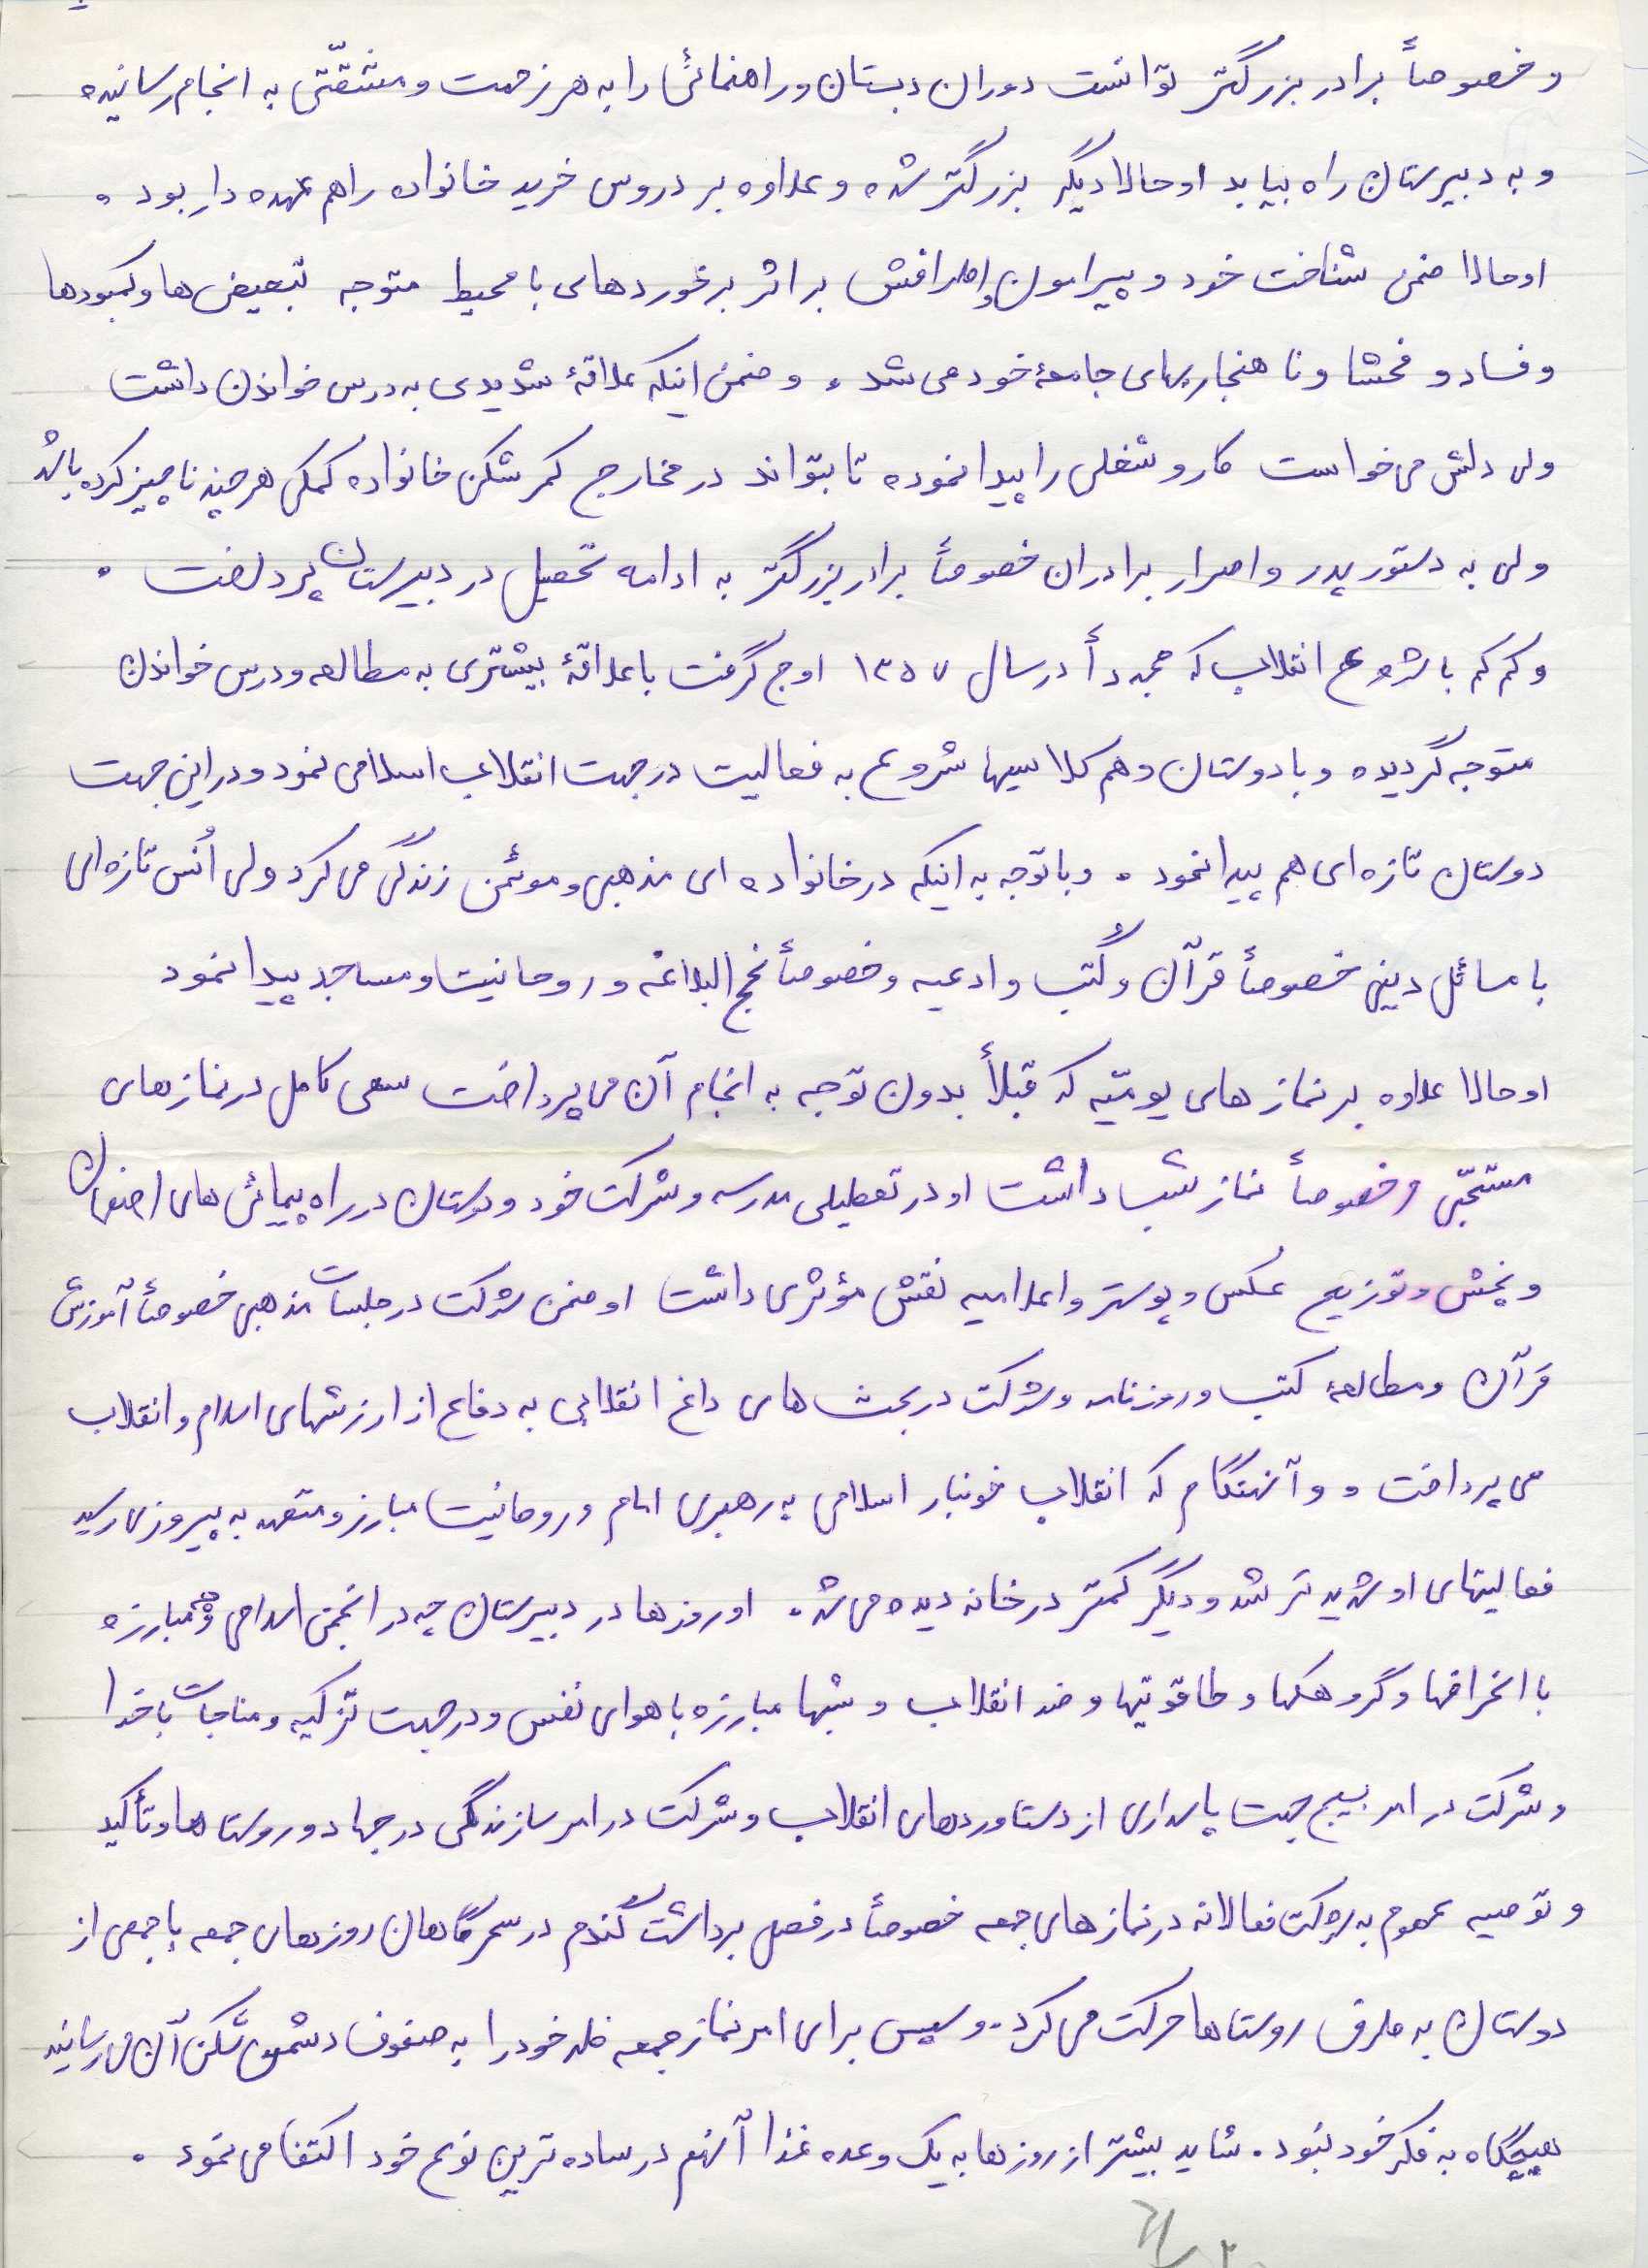 و خصوصاً برادر بزرگتر توانست دوران دبستان و راهنمائی را به هر زحمت و مشقّتی به انجام رسانیده
و به دبیرستان راه بیابد او حالا دیگر بزرگتر شده و علاوه بر دروس خرید خانواده را هم عهده دارِ بود .
او حالا ضمن شناخت خود و پیرامون و اطرافش بر اثر برخوردهای با محیط متوجه تبعیض ها و کمبودها
و فساد و فحشا و نا هنجاریهای جامعهٔ خود می شد ، و ضمن اینکه علاقهٔ شدیدی به درس خواندن داشت
ولی دلش می خواست کار و شغلی را پیدا نموده تا بتواند در مخارج کمر شکن خانواده کمکی هر چند ناچیز کرده باشد
ولی به دستور پدر و اصرار برادران خصوصاً برادر بزرگتر به ادامه تحصیل در دبیرستان پرداخت .
و کم کم با شروع انقلاب که مجدداً در سال ۱۳۵۷ اوج گرفت با علاقهٔ بیشتری به مطالعه و درس خواندن
متوجه گردیده و با دوستان و هم کلاسیها شروع به فعالیت در جهت انقلاب اسلامی نمود و در این جهت
دوستان تازه ای هم پیدا نمود . و با توجه به اینکه در خانواده ای مذهبی و موئمن زندگی می کرد ولی اُنس تازه ای
با مسائل دینی خصوصاً قرآن و کُتب و ادعیه و خصوصاً نهج البلاغه و روحانیت و مساجد پیدا نمود
او حالا علاوه بر نماز های یومیّه که قبلاً بدون توجه به انجام آن می پرداخت سعی کامل در نمازهای
مستحبّی و خصوصاً نماز شب داشت او در تعطیلی مدرسه و شرکت خود و دوستان در راه پیمائی های اصفهان
و پخش و توزیع عکس و پوستر و اعلامیه نقش مؤثری داشت او ضمن شرکت در جلسات مذهبی خصوصاً آموزش
قرآن و مطالعهٔ کتب و روزنامه و شرکت در بحث های داغ انقلابی به دفاع از ارزشهای اسلام و انقلاب
می پرداخت و و آنهنگام که انقلاب خونبار اسلامی به رهبری امام و روحانیت مبارز و متعهد به پیروزی رسید
فعالیتهای او شدید تر شد و دیگر کمتر در خانه دیده می شد . او روزها در دبیرستان چه در انجمن اسلامی و چه مبارزه
با انحرافها و گروهکها و طاقوتیها و ضد انقلاب و شبها مبارزه با هوای نفس و در جهت تزکیه و مناجات با خدا
و شرکت در امر بسیج جهت پاسداری از دستاوردهای انقلاب و شرکت در امر سازندگی در جهاد و روستاها و تأکید
و توصیه عموم به شرکت فعالانه در نمازهای جمعه خصوصاً در فصل برداشت گندم در سحرگاهان روزهای جمعه با جمعی از
دوستان به طرف روستاها حرکت می کرد . و سپس برای امر نماز جمعه خود را به صفوف دشمن شکن آن می رسانید
هیچگاه به فکر خود نبود . شاید بیشتر از روزها به یک وعده غذا آنهم در ساده ترین نوع خود اکتفا می نمود .